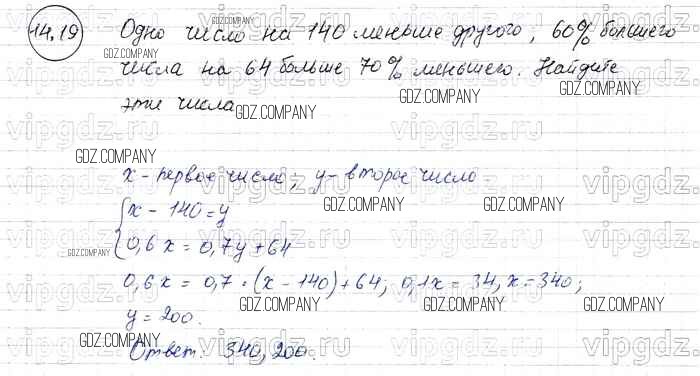 14.19 Одно число на 140 меньше другого, 60% большего
числа на 64 больше 70% меньшего. Найдите
эти числа
x - первое число; y - второе число
x - 140 = y
0,6x = 0,7y + 64
0,6x = 0,7 · (x - 140) + 64; 0,1x = 34, x = 340;
y = 200.
Ответ: 340, 200.
GDZ.COMPANY
vipgdz.ru